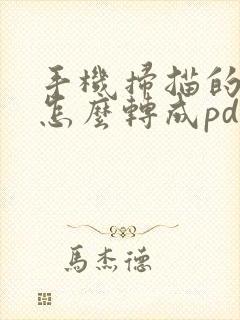 手機掃描的
怎麼轉成pd
馬杰德